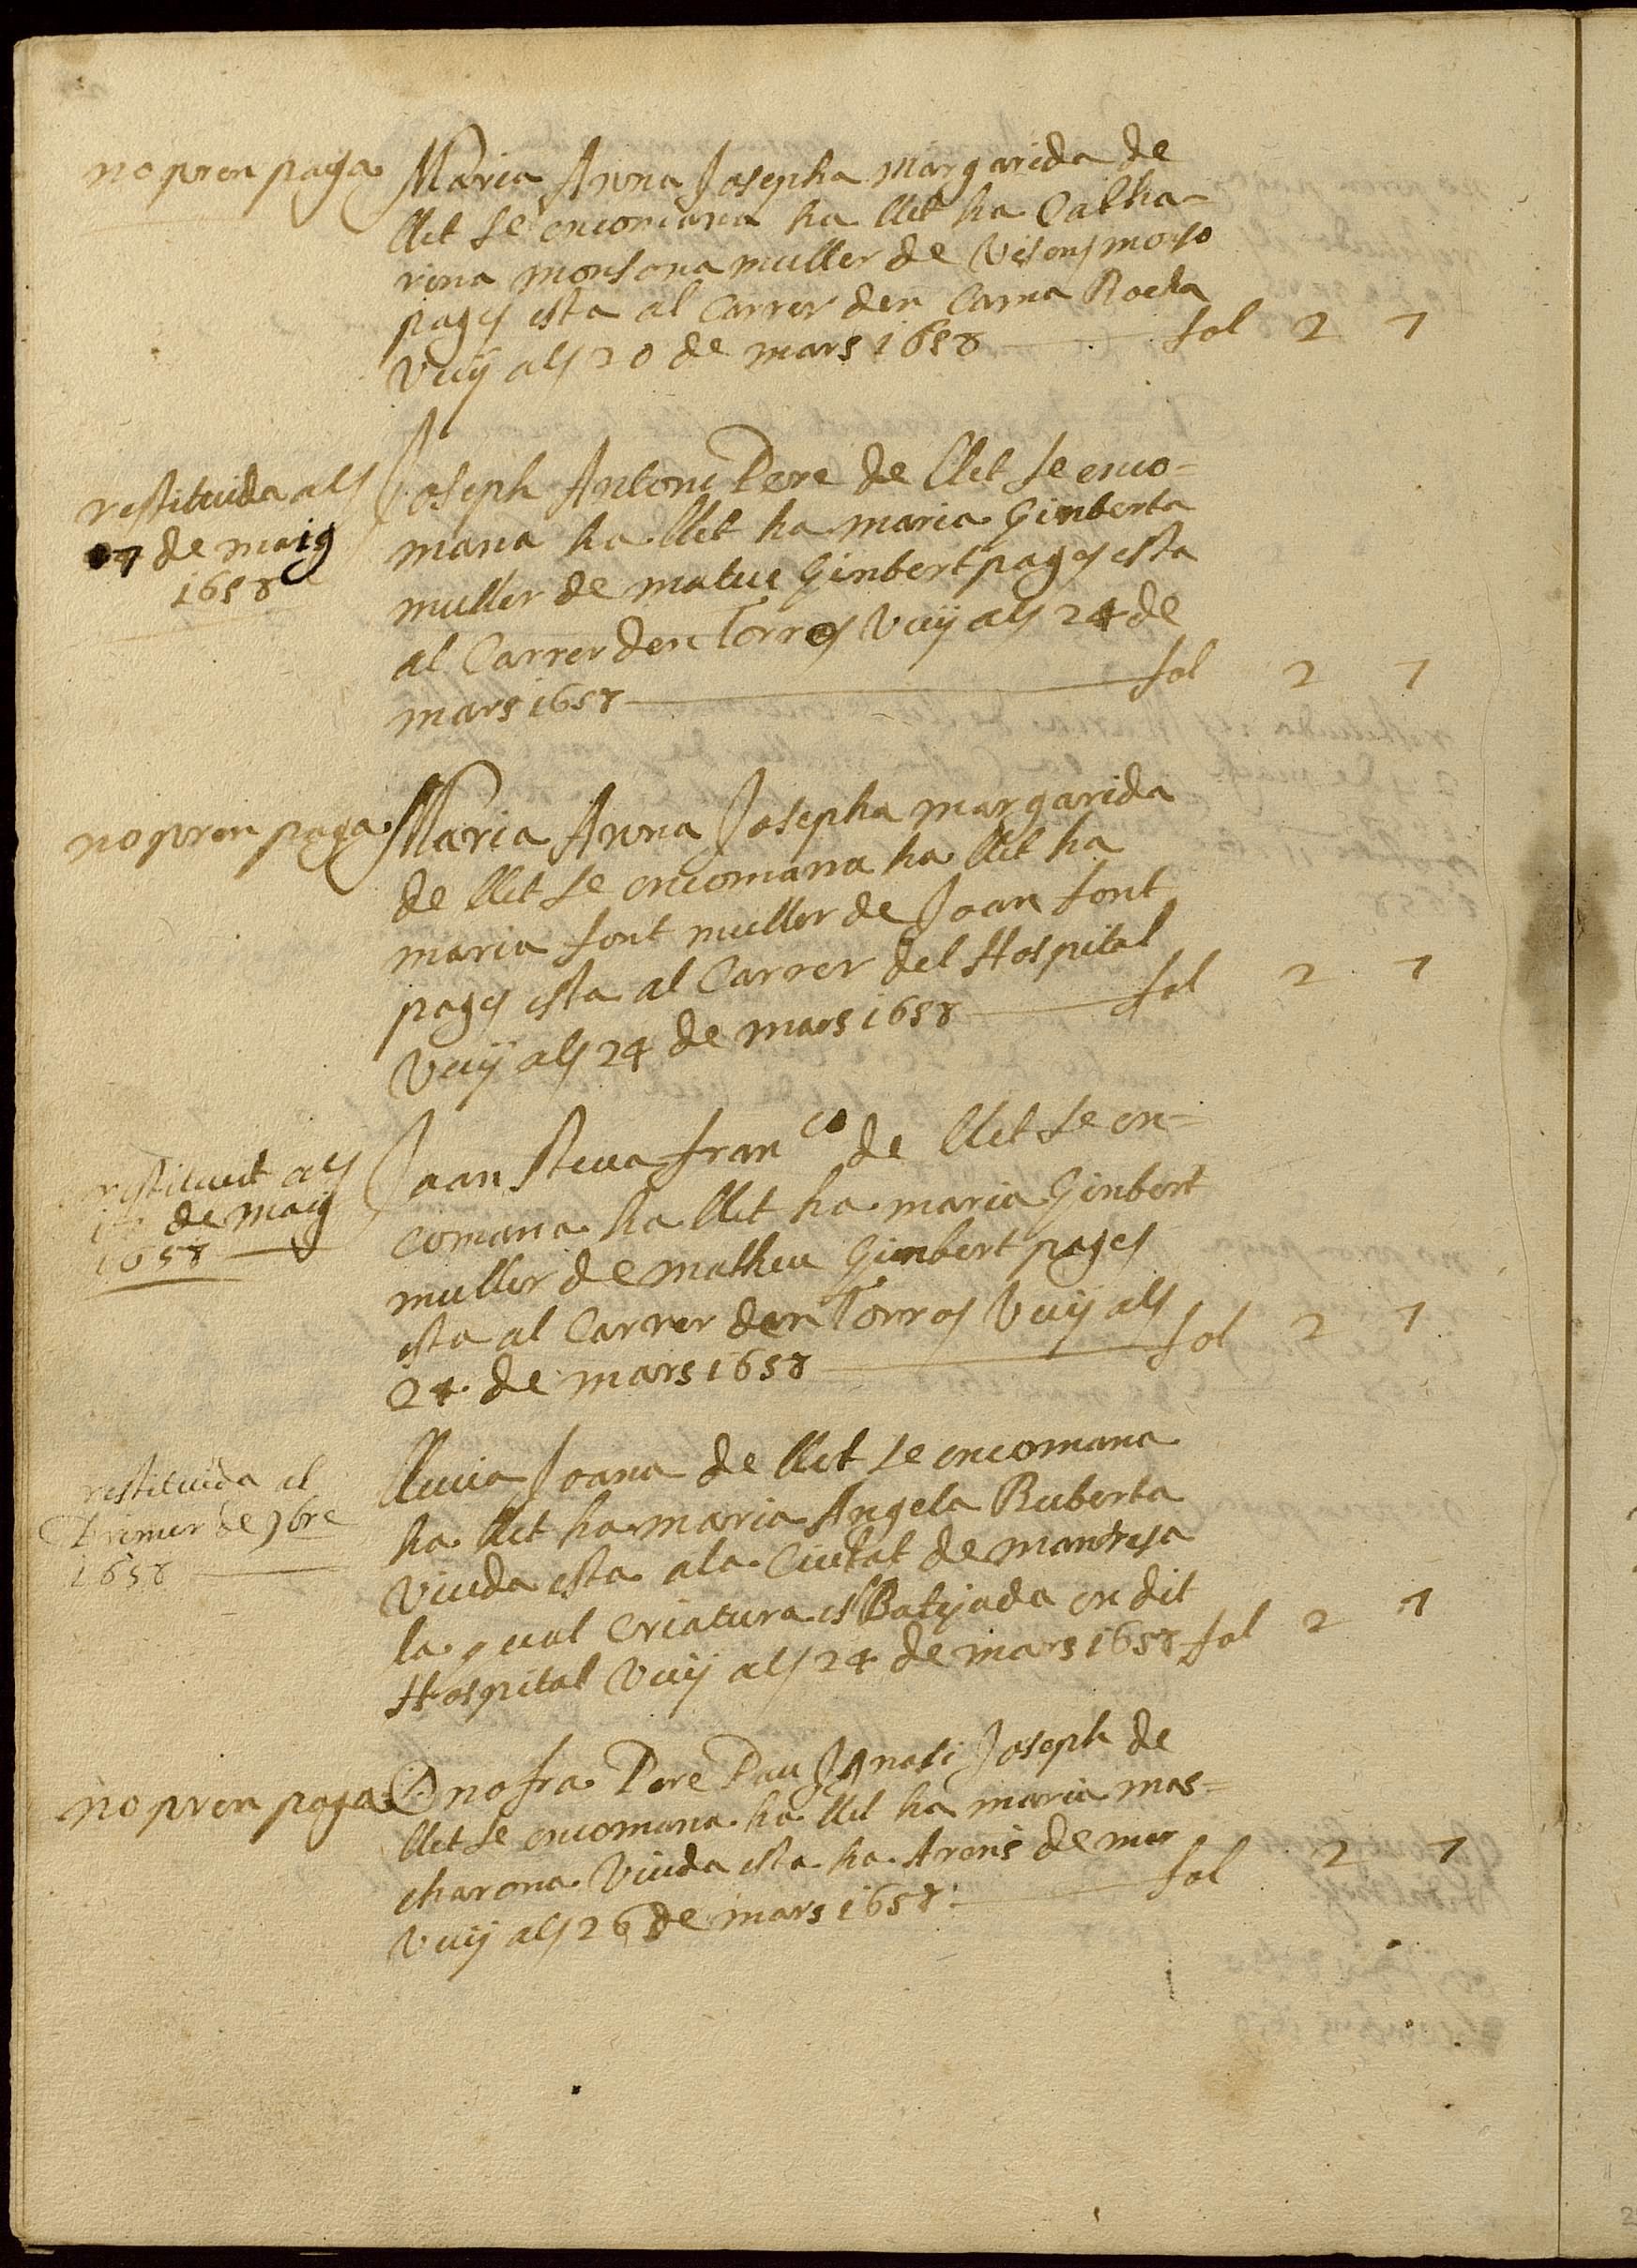 no pren paga
Maria Anna Josepha Margarida de
llet se encomana ha llet ha Catha-
rina monsona muller de Visens monso
pages esta al Carrer den Cama Rocha
Vuÿ als 20 de mars 1658 fol 2 1
restituida als
07 de maig
1658
Joseph Antoni Pere de llet se enco-
mana ha llet ha maria Ginberta
muller de mateu Ginbert pages esta
al Carrer den Torres Vuÿ als 24 de
mars 1658 fol 2 1
no pren paga
Maria Anna Josepha margarida
de llet se encomana ha llet ha
maria font muller de Joan font
pages esta al Carrer del Hospital
Vuÿ als 24 de mars 1658 fol 2 1
restituit als
de maig
1658
Joan Steva fran.co de llet se en-
comana ha llet ha maria Ginbert
muller de matheu Ginbert pages
esta al Carrer den Torros Vuÿ als
24 de mars 1658 fol 2 1
restituida al
Primer de 9bre
1658
lluuia Joana de llet se encomana
ha llet ha maria Angela Ruberta
Viuda esta a la Ciutat de manresa
la qual Criatura es Batejada en dit
Hospital Vuÿ als 24 de mars 1658 fol 2 1
no pren paga
Onofra Pere Pau Ignasi Joseph de
llet se encomana ha llet ha maria mas-
charona Viuda esta ha Arens de mar
Vuÿ als 26 de mars 1658 fol 2 1